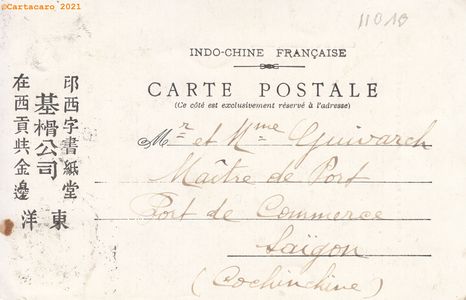 ©Cartacaro 2021
11010
INDO-CHINE FRANÇAISE
CARTE POSTALE
(Ce côté est exclusivement réservé à l'adresse)
Mr et Mme Guivarch
Maître de Port
Port de Commerce
Saïgon
(Cochinchine)
印西字書紙堂
基樗公司
在西貢共金邊
東洋